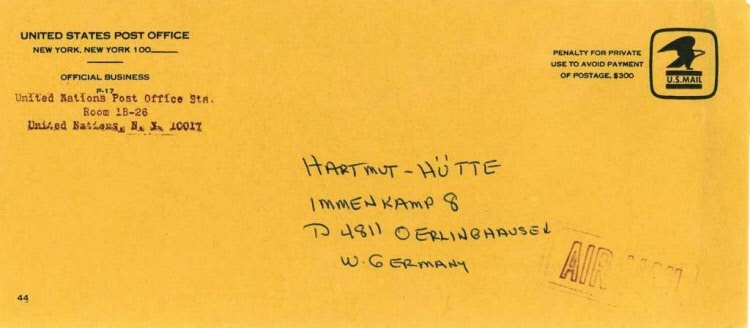 UNITED STATES POST OFFICE
NEW YORK, NEW YORK 100
OFFICIAL BUSINESS
P-17
United Nations Post Office Sta.
Room 1B-26
United Nations, N. Y. 10017
PENALTY FOR PRIVATE
USE TO AVOID PAYMENT
OF POSTAGE, $300
U.S.MAIL
HARTMUT-HÜTTE
IMMENKAMP 8
D 4811 OERLINGHAUSEN
W. GERMANY
AIR MAIL
44